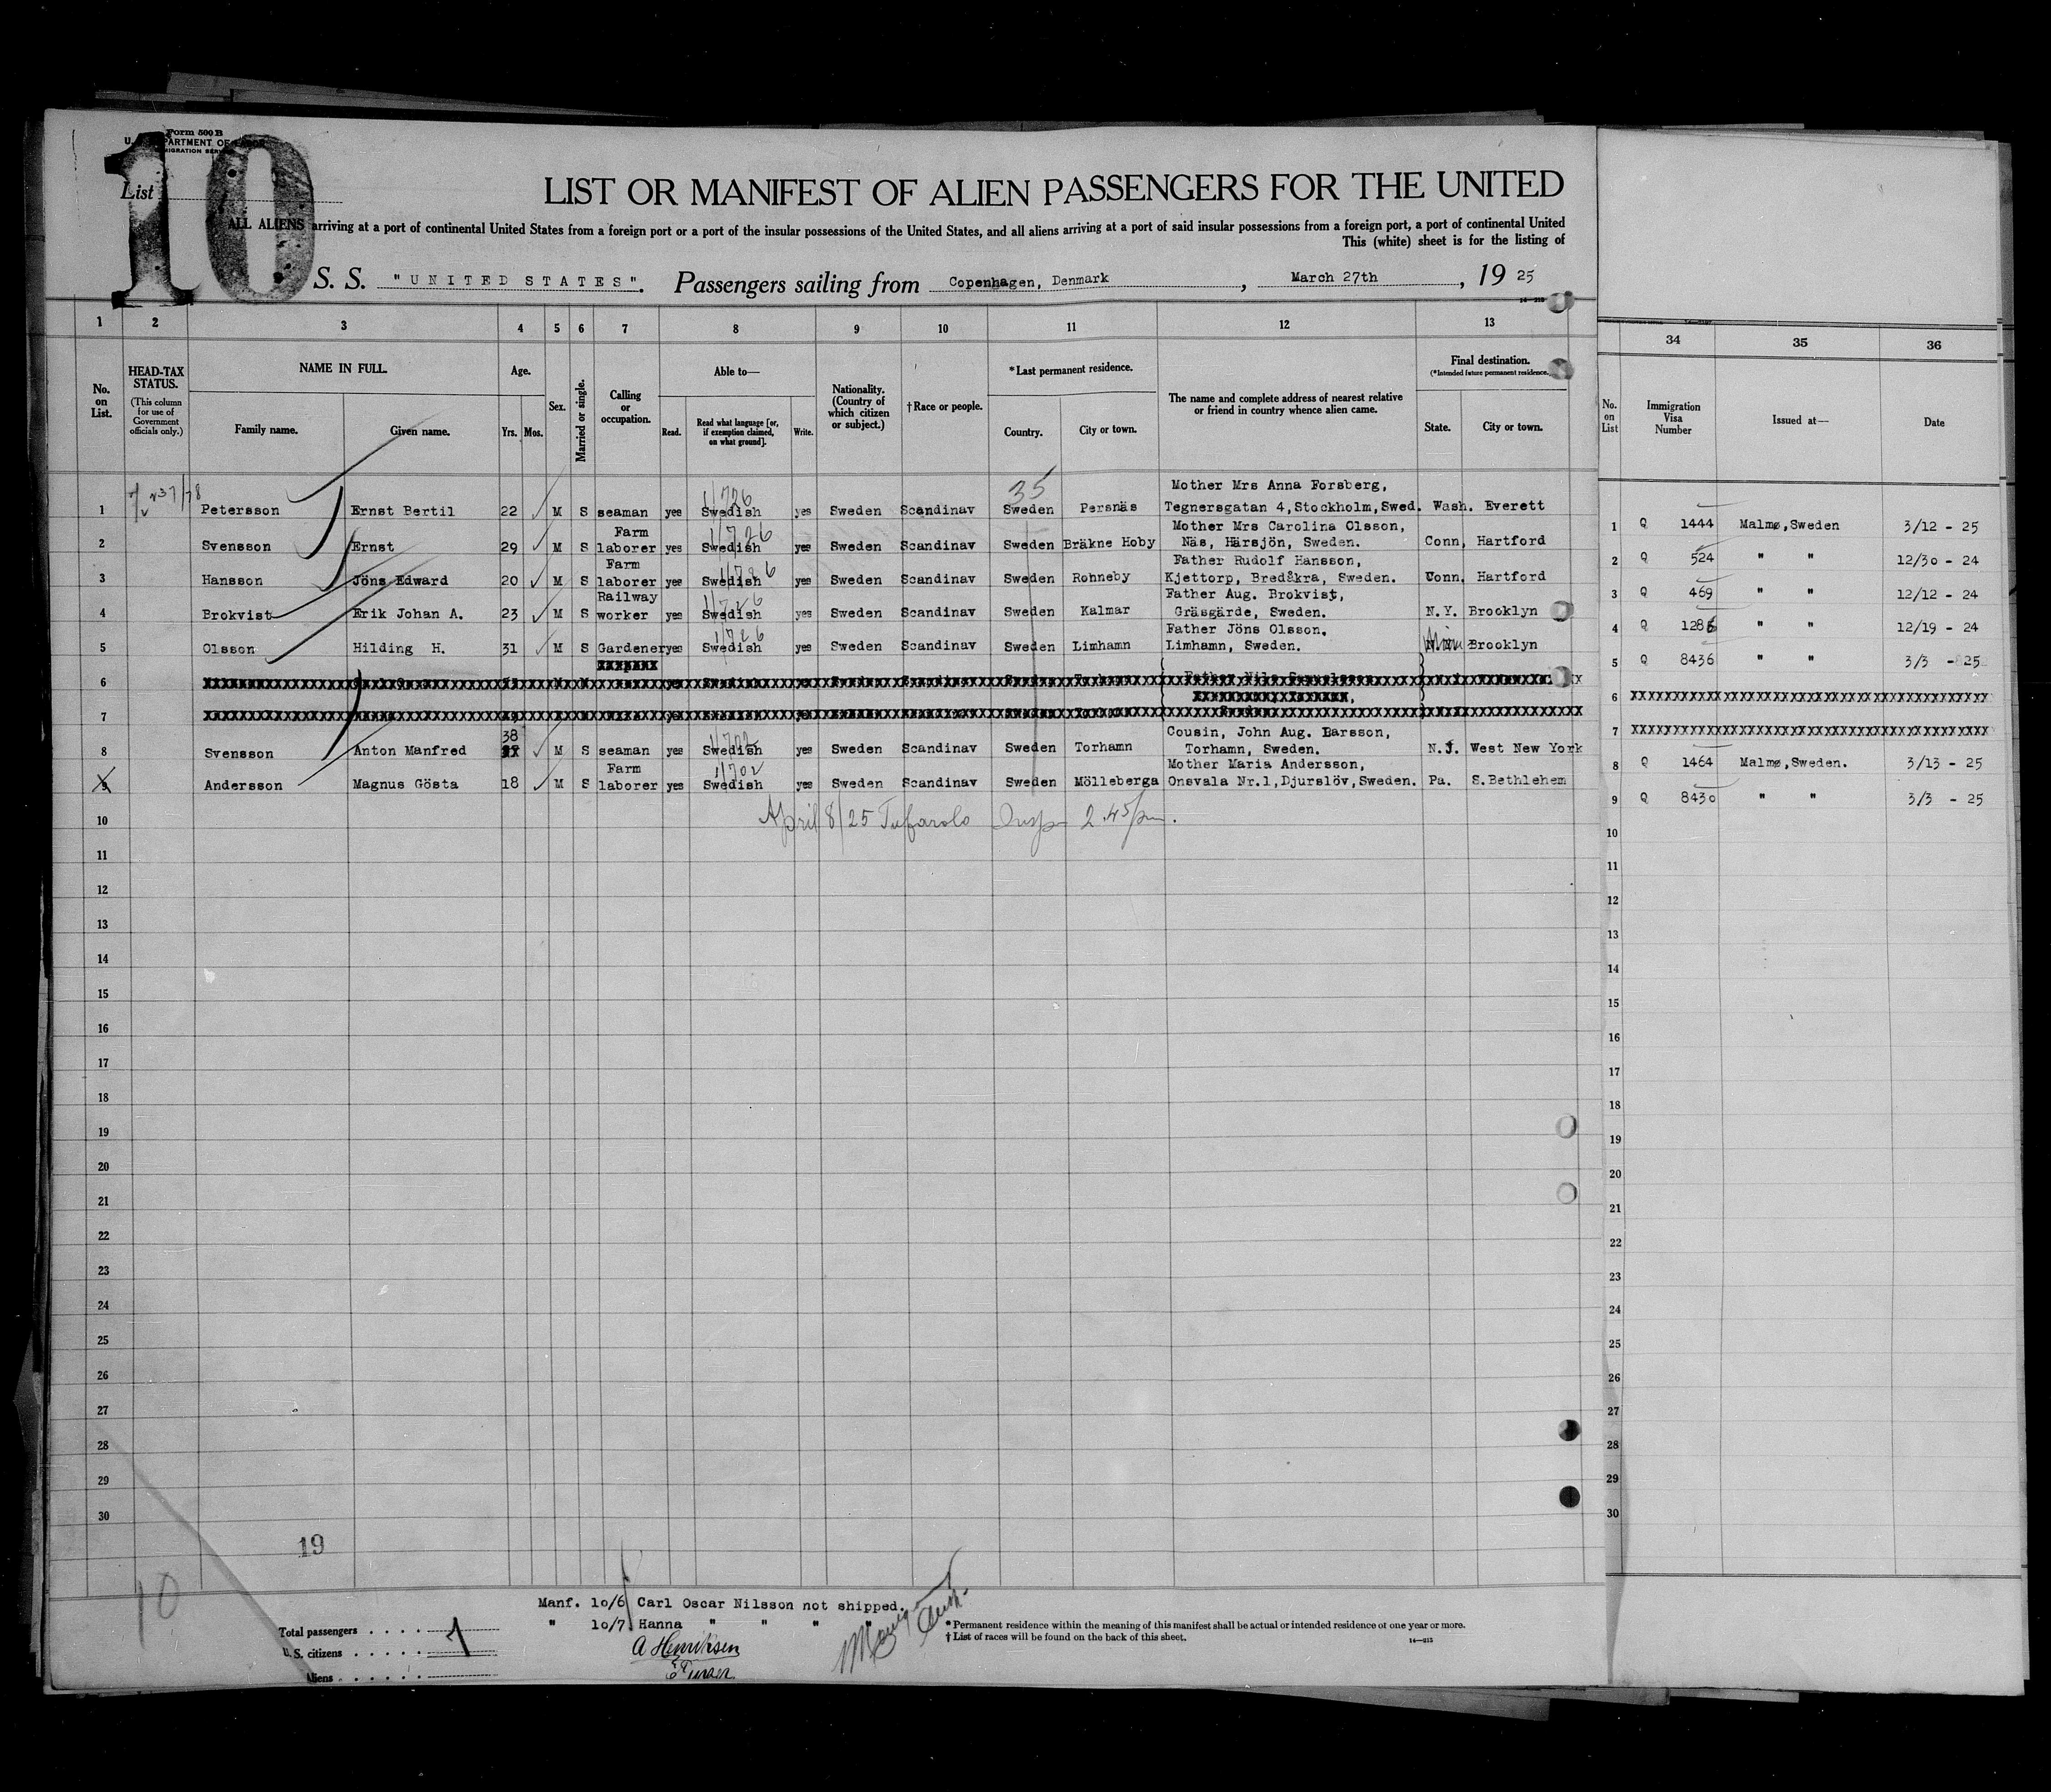 Form 500 B
U. S. DEPARTMENT OF LABOR
IMMIGRATION SERVICE
List
10
LIST OR MANIFEST OF ALIEN PASSENGERS FOR THE UNITED
ALL ALIENS arriving at a port of continental United States from a foreign port or a port of the insular possessions of the United States, and all aliens arriving at a port of said insular possessions from a foreign port, a port of continental United
This (white) sheet is for the listing of
S. S. "UNITED STATES". Passengers sailing from Copenhagen, Denmark, March 27th, 19 25
14—213
1 2 3 4 5 6 7 8 9 10 11 12 13 34 35 36
No. on List.
HEAD-TAX STATUS.
(This column for use of Government officials only.)
NAME IN FULL.
Family name. Given name.
Age.
Yrs. Mos.
Sex.
Married or single.
Calling or occupation.
Able to—
Read. Read what language [or, if exemption claimed, on what ground]. Write.
Nationality. (Country of which citizen or subject.)
† Race or people.
* Last permanent residence.
Country. City or town.
The name and complete address of nearest relative or friend in country whence alien came.
Final destination.
(* Intended future permanent residence.)
State. City or town.
No. on List
Immigration Visa Number
Issued at—
Date
35
1 Petersson Ernst Bertil 22 M S seaman yes Swedish yes Sweden Scandinav Sweden Persnäs Mother Mrs Anna Forsberg, Tegnersgatan 4, Stockholm, Swed. Wash. Everett
2 Svensson Ernst 29 M S Farm laborer yes Swedish yes Sweden Scandinav Sweden Bräkne Hoby Mother Mrs Carolina Olsson, Näs, Härsjön, Sweden. Conn, Hartford
3 Hansson Jöns Edward 20 M S Farm laborer yes Swedish yes Sweden Scandinav Sweden Rohneby Father Rudolf Hansson, Kjettorp, Bredåkra, Sweden. Conn. Hartford
4 Brokvist Erik Johan A. 23 M S Railway worker yes Swedish yes Sweden Scandinav Sweden Kalmar Father Aug. Brokvist, Gräsgärde, Sweden. N.Y. Brooklyn
5 Olsson Hilding H. 31 M S Gardener yes Swedish yes Sweden Scandinav Sweden Limhamn Father Jöns Olsson. Limhamn, Sweden. Brooklyn
6
7
8 Svensson Anton Manfred 38 M S seaman yes Swedish yes Sweden Scandinav Sweden Torhamn Cousin, John Aug. Barsson, Torhamn, Sweden. N.J. West New York
9 Andersson Magnus Gösta 18 M S Farm laborer yes Swedish yes Sweden Scandinav Sweden Mölleberga Mother Maria Andersson, Onsvala Nr.1, Djurslöv, Sweden. Pa. S. Bethlehem
1 Q 1444 Malmø, Sweden 3/12 - 25
2 Q 524 " " 12/30 - 24
3 Q 469 " " 12/12 - 24
4 Q 1286 " " 12/19 - 24
5 Q 8436 " " 3/3 - 25
6
7
8 Q 1464 Malmø, Sweden. 3/13 - 25
9 Q 8430 " " 3/3 - 25
10 April 8/25 Insp 2.45 pm.
11
12
13
14
15
16
17
18
19
20
21
22
23
24
25
26
27
28
29
30
19
10
Manf. 10/6 Carl Oscar Nilsson not shipped.
" 10/7 Hanna " " " "
A Henriksen
Total passengers
U. S. citizens
Aliens
* Permanent residence within the meaning of this manifest shall be actual or intended residence of one year or more.
† List of races will be found on the back of this sheet.
14—213